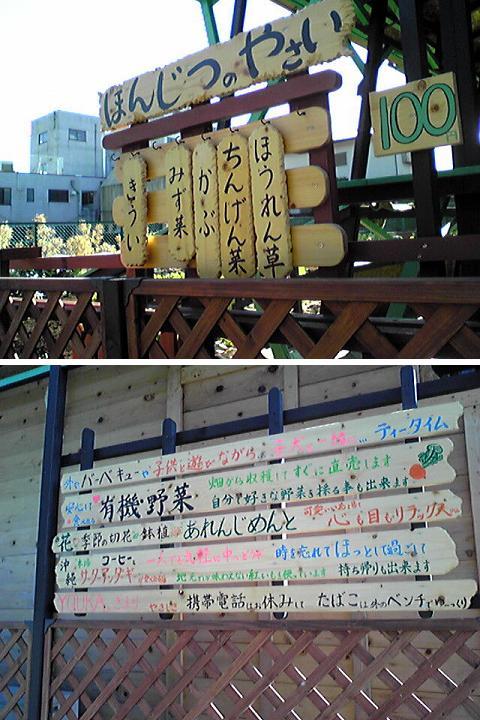 ほんじつのやさい
100円
ほうれん草
ちんげん菜
かぶ
みず菜
きうい
外でバーベキューや 子供と遊びながら ティータイム
安心して食べれる 有機野菜 畑から収穫してすぐに直売します
自分で好きな野菜を採る事も出来ます
花 季節の切花 鉢植 あれんじめんと 可愛いお花に 心も目もリラックス
沖縄 コーヒー 時を忘れてほっとして過ごして
サーターアンダギー 持ち帰りも出来ます
携帯電話はお休みして たばこは外のベンチでゆっくり